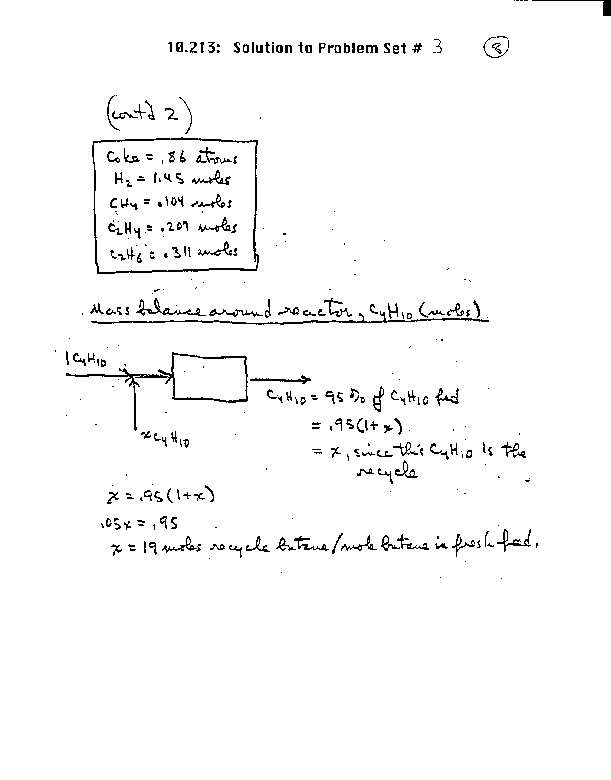 10.213: Solution to Problem Set # 3 8
(cont'd 2)
Coke = .86 atoms
H2 = 1.45 moles
CH4 = .104 moles
C2H4 = .209 moles
C2H6 = .311 moles
Mass balance around reactor, C4H10 (moles)
1 C4H10
C4H10 = 95% of C4H10 fed
= .95(1+x)
x C4H10
= x, since this C4H10 is the
recycle
x = .95(1+x)
.05x = .95
x = 19 moles recycle butane/mole butane in fresh feed.